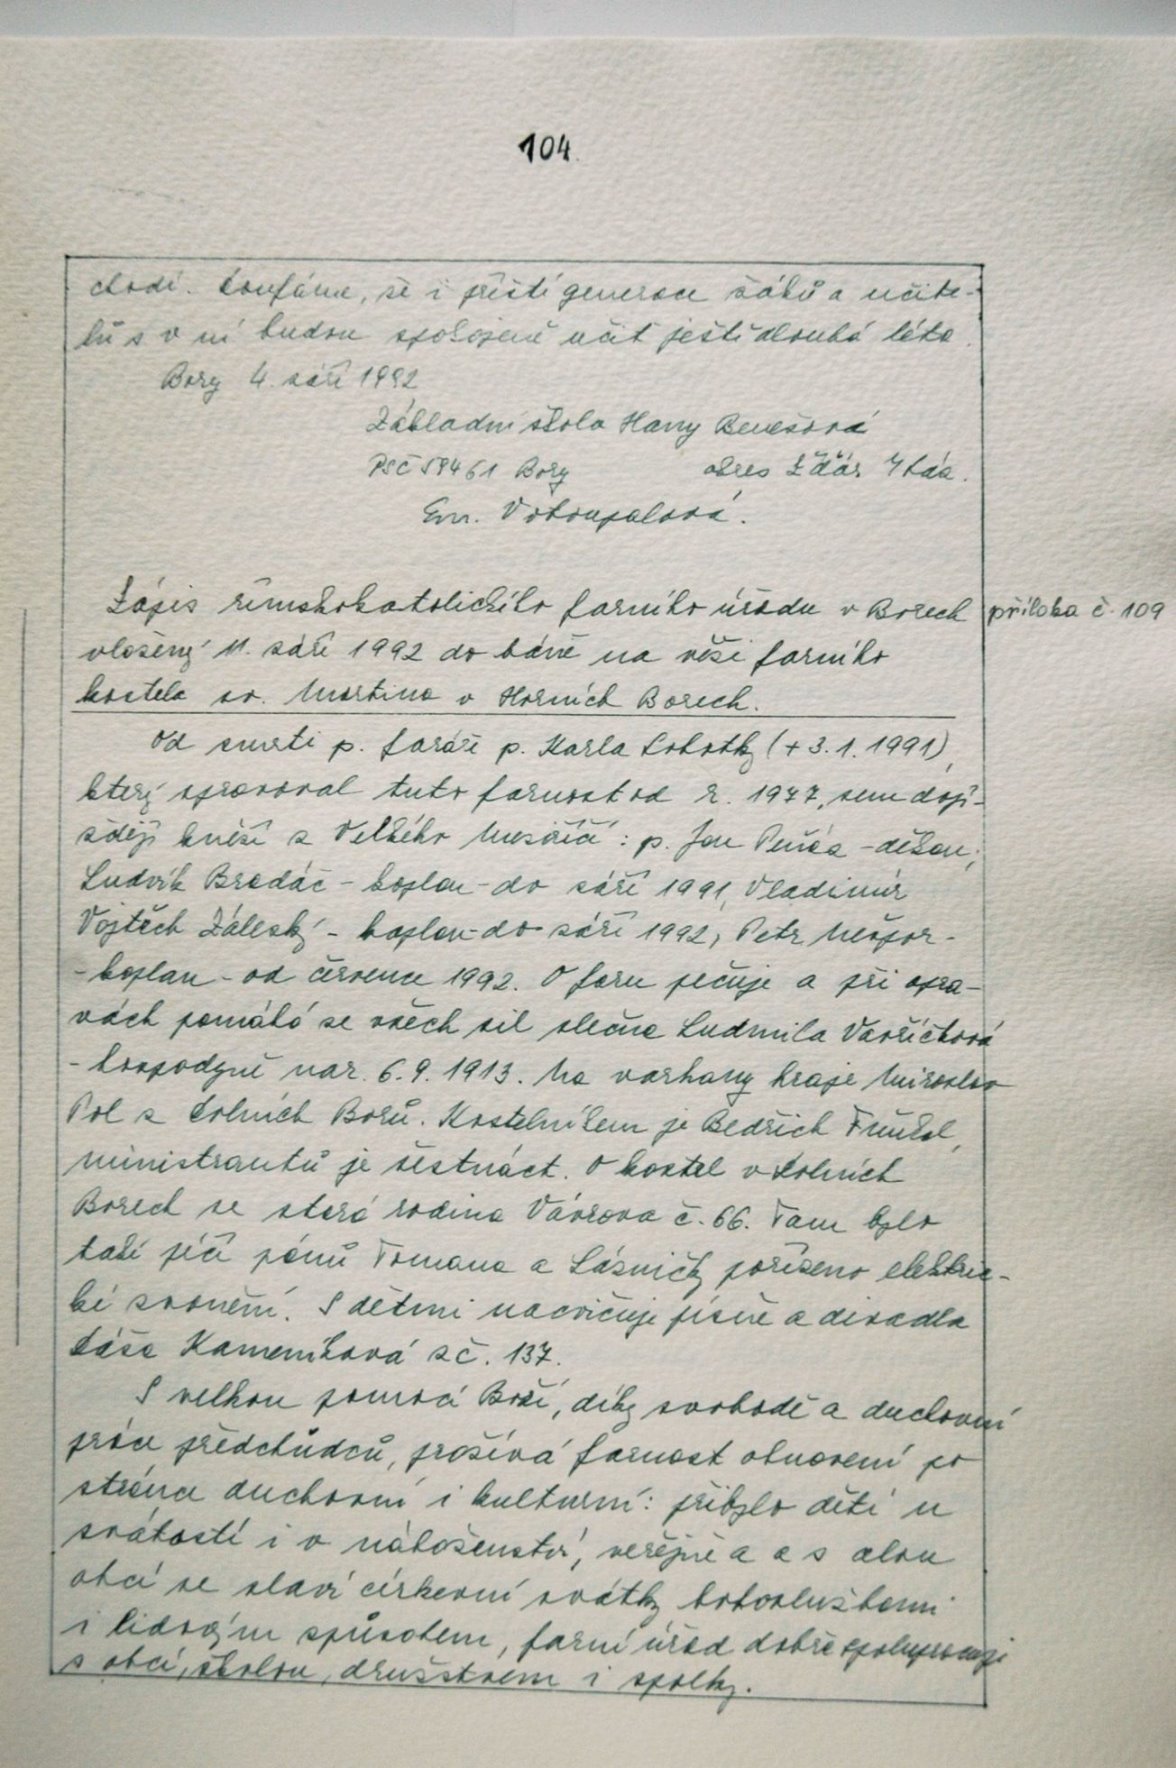 104
chodí. Doufáme, že i příští generace žáků a učite-
lů s v ní budou spokojeně učit ještě dlouhá léta.
Bory 4. září 1992
Základní škola Hany Benešová
PSČ 59461 Bory okres Žďár n. Sáz.
Em. Vokoupalová.
Zápis římskokatolického farního úřadu v Borech příloha č. 109
vložený 11. září 1992 do báně na věži farního
kostela sv. Martina v Horních Borech.
Od smrti p. faráře p. Karla Sobotky (+ 3.1.1991),
který spravoval tuto farnost od r. 1977, sem dojí-
ždějí kněží z Velkého Meziříčí: p. Jan Peňáz - děkan,
Ludvík Bradáč - kaplan - do září 1991, Vladimír
Vojtěch Záleský - kaplan - do září 1992, Petr Nešpor -
- kaplan - od července 1992. O faru pečuje a při opra-
vách pomáhá ze všech sil slečna Ludmila Vavříčková
- hospodyně nar. 6.9.1913. Na varhany hraje Miroslav
Pol z Dolních Borů. Kostelníkem je Bedřich
ministrantů je šestnáct. O kostel v Dolních
Borech se stará rodina Vávrova č. 66. Tam bylo
také péčí pánů Tomana a Lázničky pořízeno elektric-
ké zvonění. S dětmi nacvičuje písně a divadla
Dáša Kameníková z č. 137.
S velkou pomocí Boží, díky svobodě a duchovní
práce předchůdců, prožívá farnost obnovení po
stránce duchovní i kulturní: přibylo dětí u
svátostí i v náboženství, veřejně a s celou
obcí se slaví církevní svátky bohoslužbami
i lidovým způsobem, farní úřad dobře spolupracuje
s obcí, školou, družstvem i spolky.